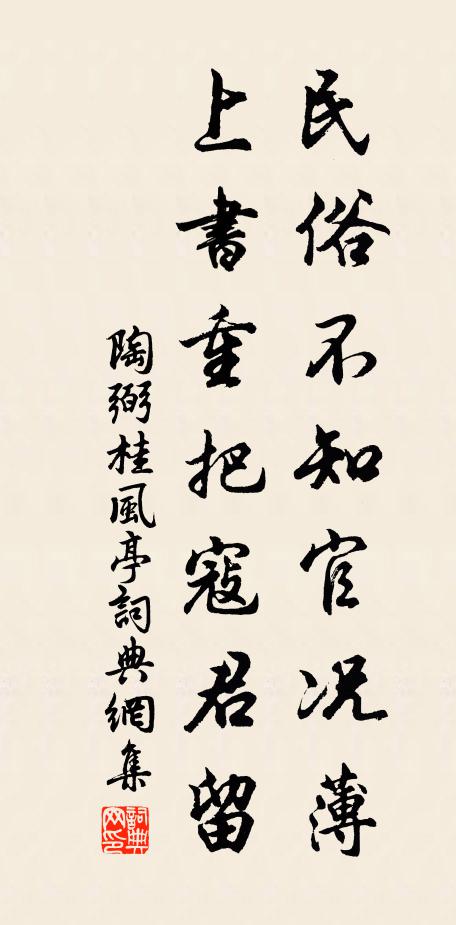 民俗不知官况薄
上書重把寇君留
陶弼桂風亭詞典網集
詞典網印